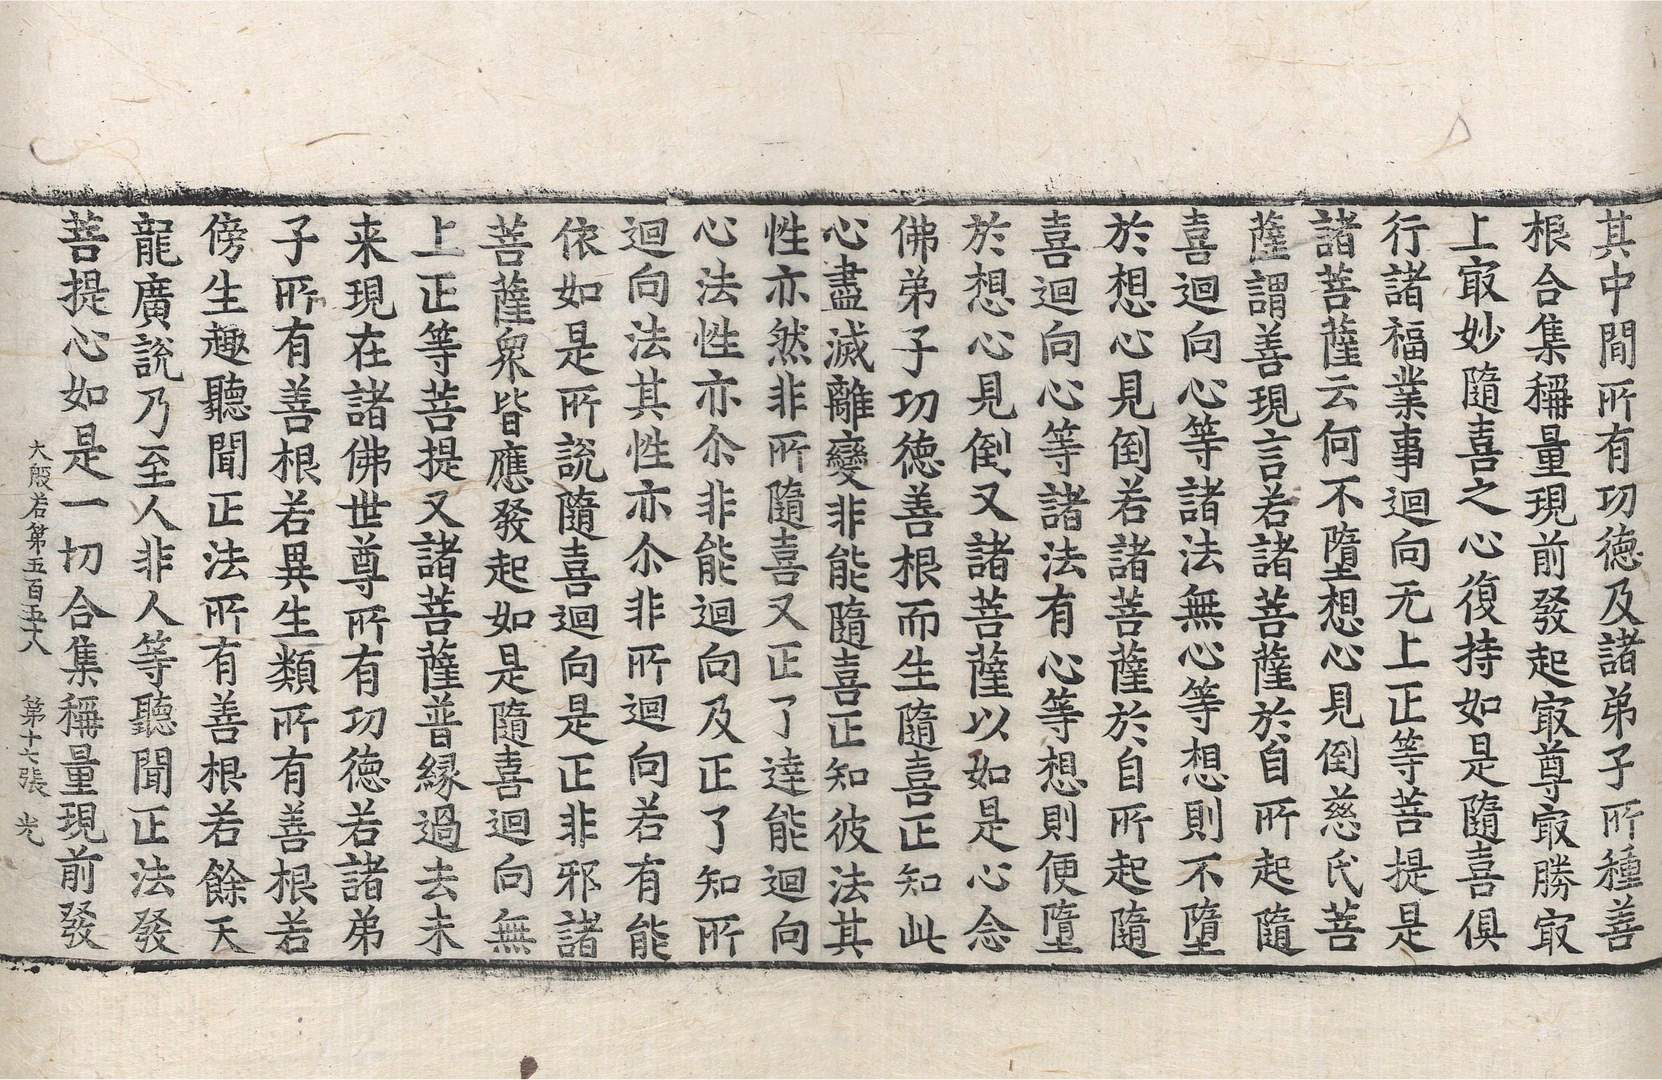 其中間所有功德及諸弟子所種善
根合集稱量現前發起㝡尊㝡勝㝡
上㝡妙隨喜之心復持如是隨喜俱
行諸福業事迴向无上正等菩提是
諸菩薩云何不墮想心見倒慈氏菩
薩謂善現言若諸菩薩於自所起隨
喜迴向心等諸法無心等想則不墮
於想心見倒若諸菩薩於自所起隨
喜迴向心等諸法有心等想則便墮
於想心見倒又諸菩薩以如是心念
佛弟子功德善根而生隨喜正知此
心盡滅離變非能隨喜正知彼法其
性亦然非所隨喜又正了達能迴向
心法性亦尒非能迴向及正了知所
迴向法其性亦尒非所迴向若有能
依如是所說隨喜迴向是正非邪諸
菩薩衆皆應發起如是隨喜迴向無
上正等菩提又諸菩薩普緣過去未
来現在諸佛世尊所有功德若諸弟
子所有善根若異生類所有善根若
傍生趣聽聞正法所有善根若餘天
龍廣說乃至人非人等聽聞正法發
菩提心如是一切合集稱量現前發
大般若第五百 第十七張 光